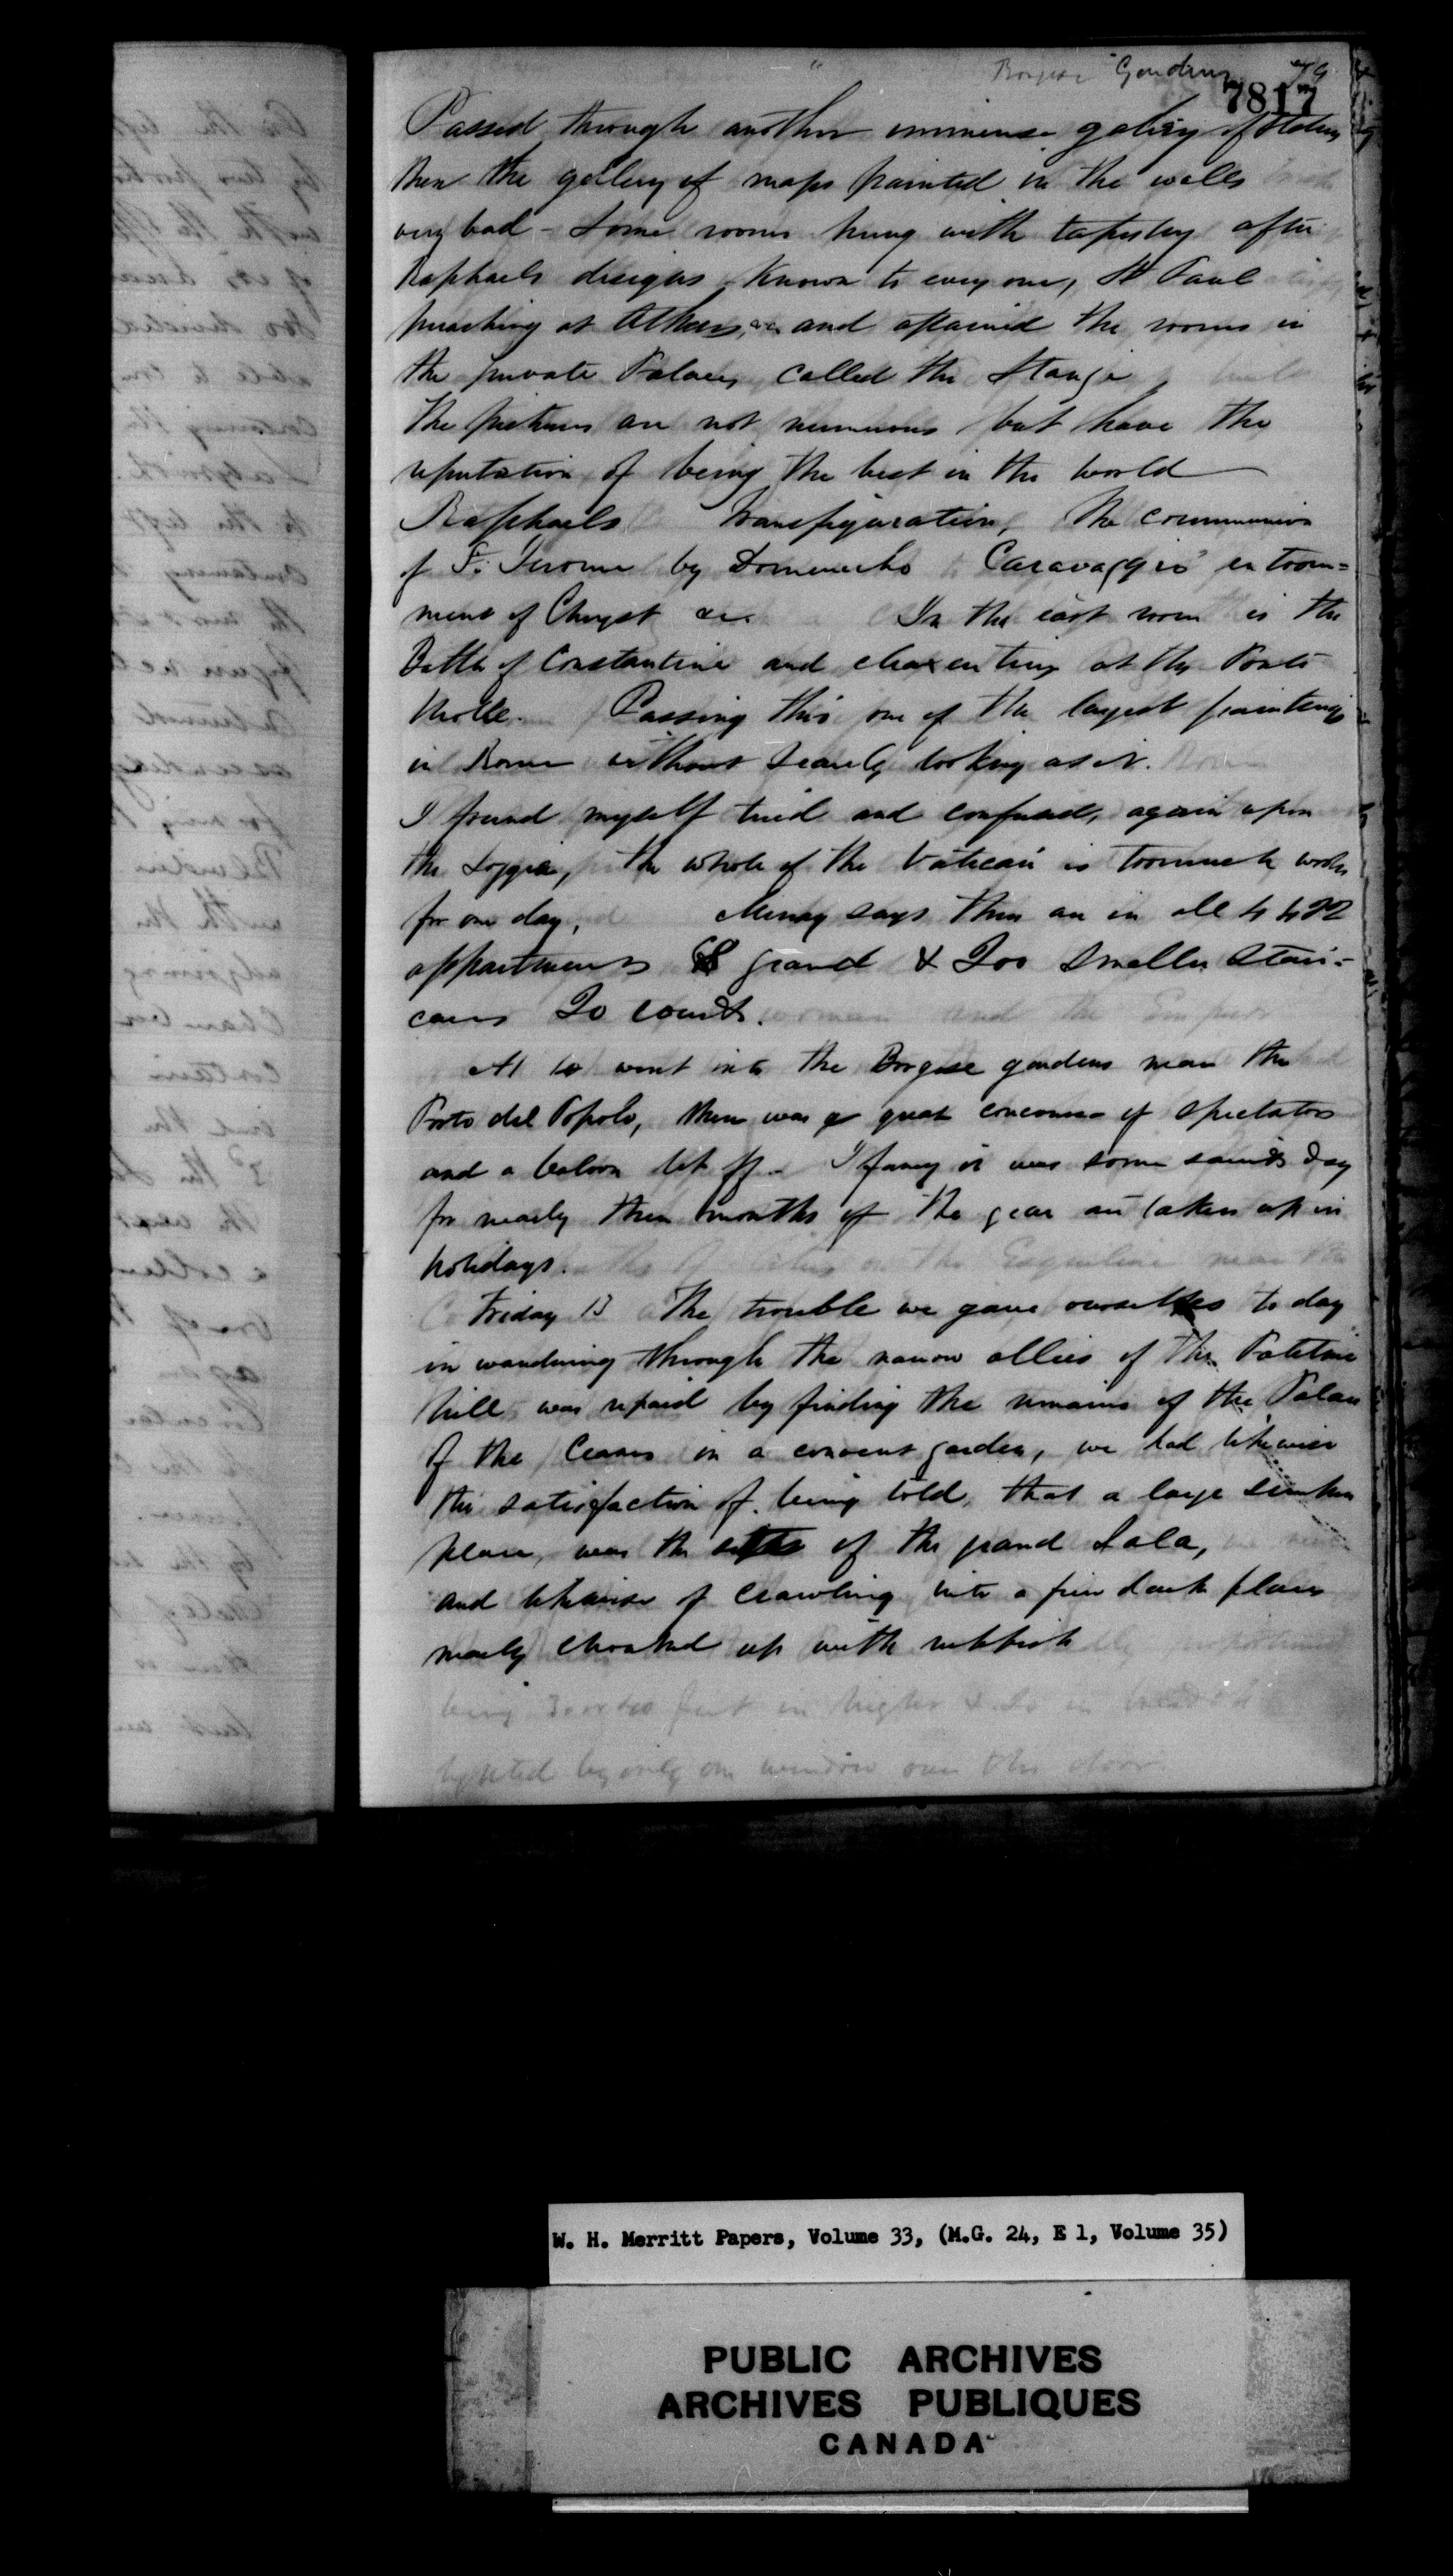 Borgese Gardens 79
7817
Passed through another immense galery of
then the gallery of maps painted in the walls
very bad - Some rooms hung with tapestry after
Raphaels designs known to every one, St Paul
preaching at Athens, &c and attained the rooms in
the private Palaces called the Stanze
The pictures are not numerous but have the
reputation of being the best in the world
Raphaels Transfiguration, The communion
of St. Jerome by Domenicho Caravaggio entom=
ment of Chryst &c. In the last room is the
Battle of Constantine and at the Ponte
Molle. Passing this one of the largest paintings
in Rome without scarcely looking at it.
I found myself tired and confused, again upon
the Loggia, the whole of the Vatican is too much work
for one day, says there are in all 4422
appartments 8 grand & 200 smaller stair=
cases 20 courts.
At 10 went into the Borgese gardens near the
Porto del Popolo, there was a great concourse of spectators
and a baloon let off - I fancy it was some saints day
for nearly three months of the year are taken up in
holidays.
Friday 13 The trouble we gave ourselves to day
in wandering through the narrow allies of the Palatine
hill was repaid by finding the remains of the Palace
of the Ceasars in a convent garden, we had likewise
the satisfaction of being told, that a large sunken
place, was the site of the grand Sala,
and likewise of crawling into a few dark places
nearly choaked up with rubbish
being 30 or 40 feet in hight & 20 in breadth
lighted by only one window over the door
W. H. Merritt Papers, Volume 33, (M.G. 24, E 1, Volume 35)
PUBLIC ARCHIVES
ARCHIVES PUBLIQUES
CANADA